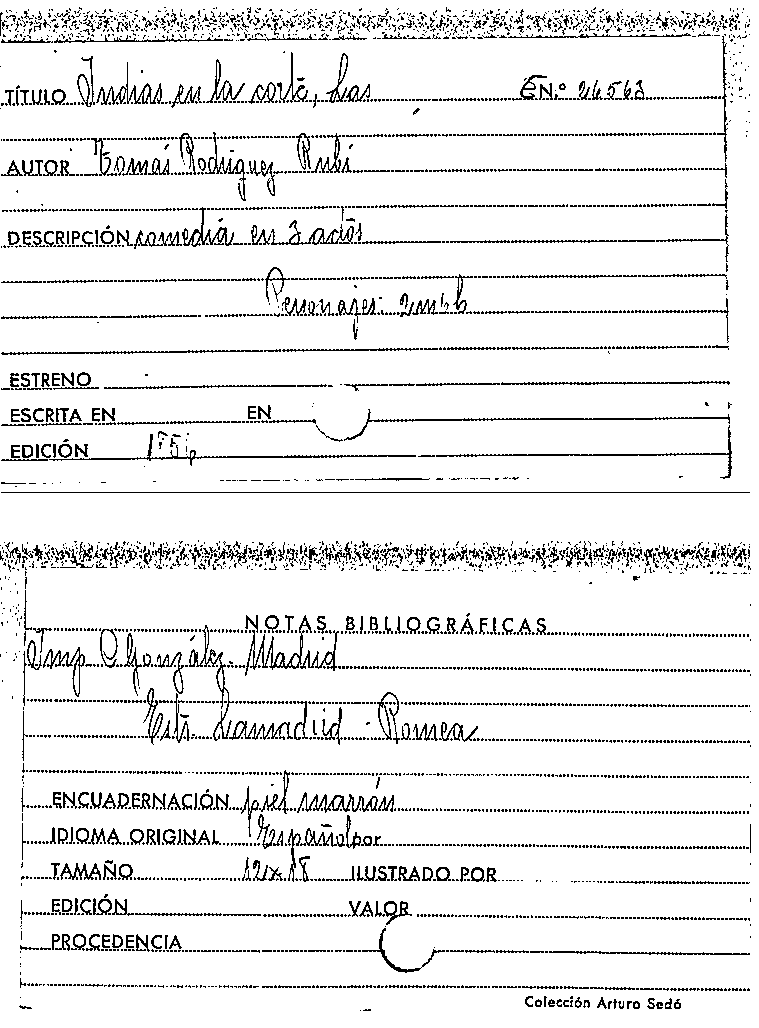 TÍTULO Indias en la corte, Las N.º 26563
AUTOR Tomás Rodríguez Rubí
DESCRIPCIÓN comedia en 3 actos
Personajes: 2m 6h
ESTRENO
ESCRITA EN EN
EDICIÓN
NOTAS BIBLIOGRÁFICAS
Imp C González. Madrid
Estr. Lamadrid - Romea
ENCUADERNACIÓN piel marrón
IDIOMA ORIGINAL Español por
TAMAÑO 12x18 ILUSTRADO POR
EDICIÓN VALOR
PROCEDENCIA
Colección Arturo Sedó